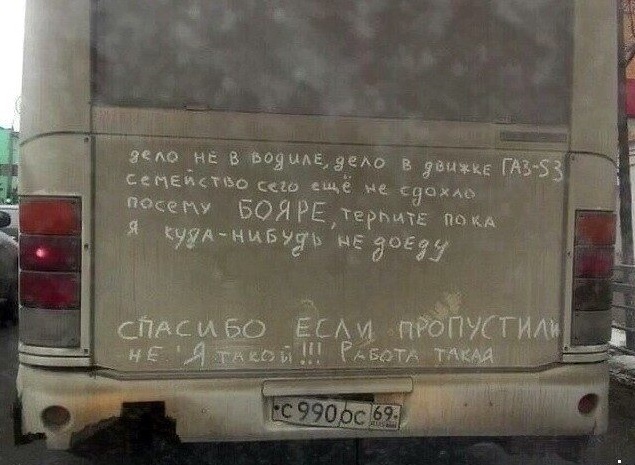 дело не в водиле, дело в движке ГАЗ-53
семейство сего ещё не сдохло
посему БОЯРЕ, терпите пока
я куда-нибудь не доеду
СПАСИБО ЕСЛИ ПРОПУСТИЛИ
НЕ Я такой!!! Работа такая
с 990 ос 69